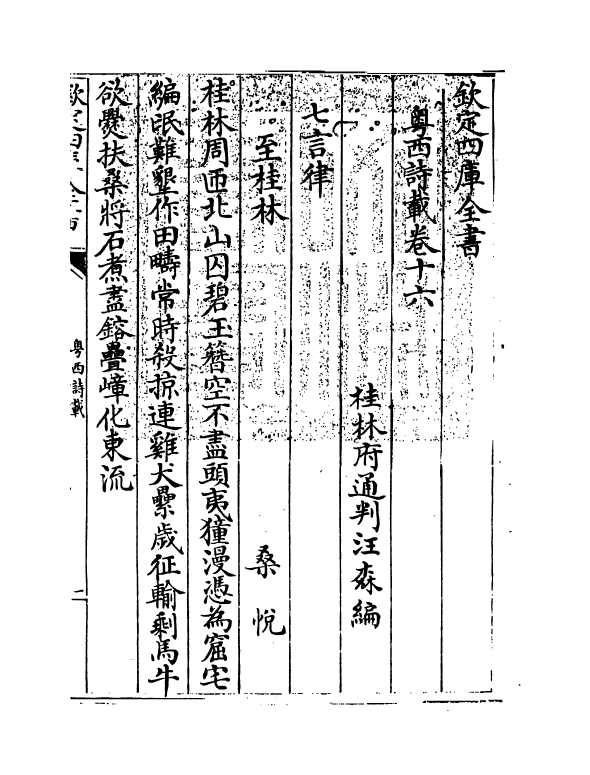 欽定四庫全書
粤西詩載卷十六
桂林府通判汪森編
七言律
至桂林　桑悅
桂林周匝北山囚碧玉簪空不盡頭夷獞漫憑為窟宅
編氓難墾作田疇常時殺掠連雞犬累歲征輸剩馬牛
欲爨扶桑將石煮盡鎔疊嶂化東流
欽定四庫全書
粤西詩載
二